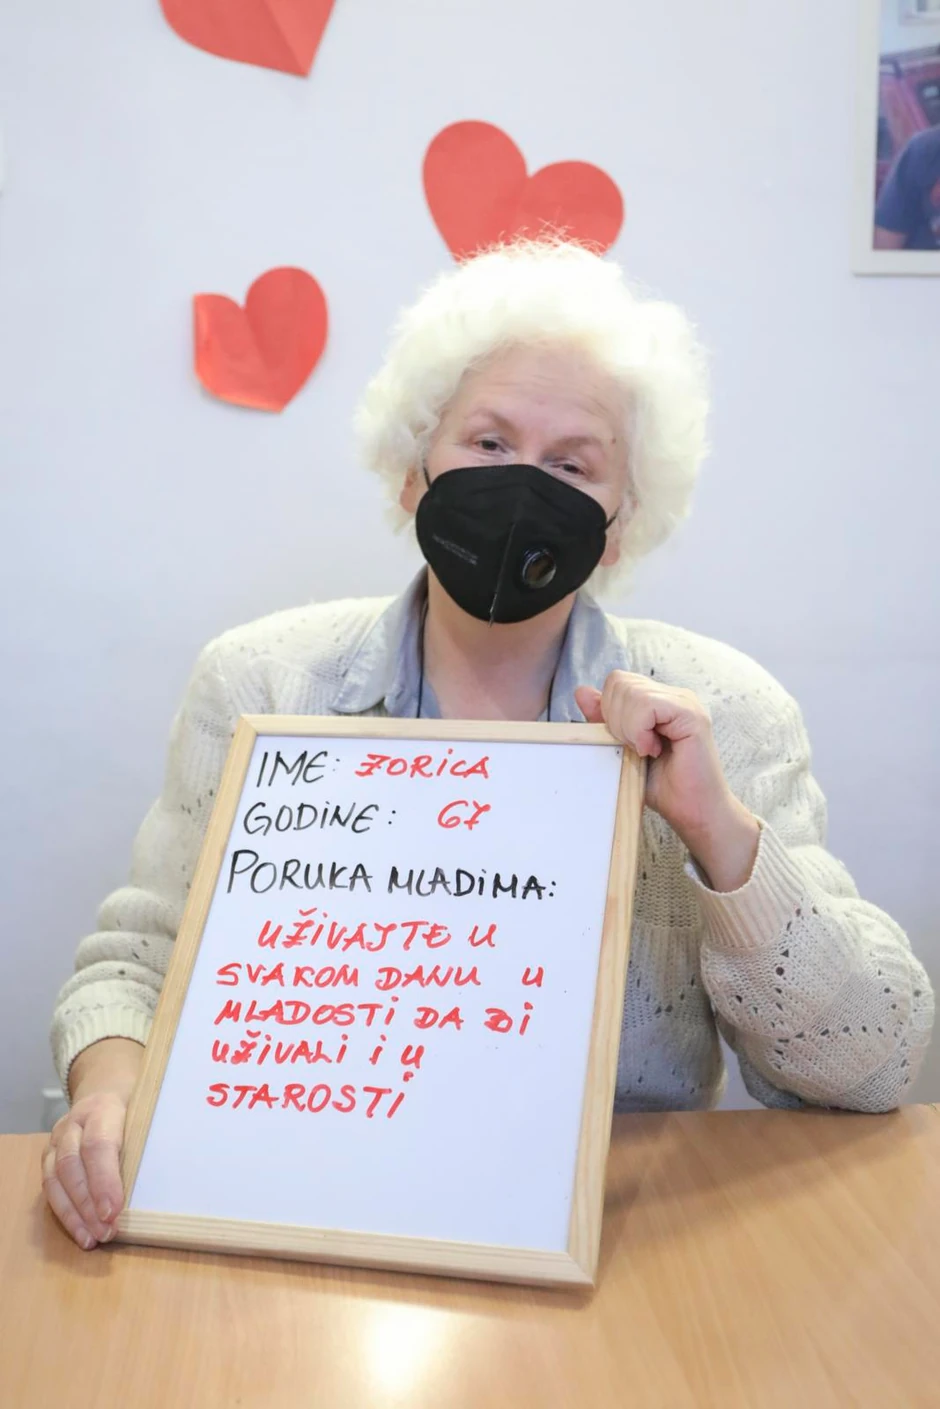 IME: ZORICA
GODINE: 67
PORUKA MLADIMA:
UŽIVAJTE U
SVAKOM DANU U
MLADOSTI DA BI
UŽIVALI I U
STAROSTI